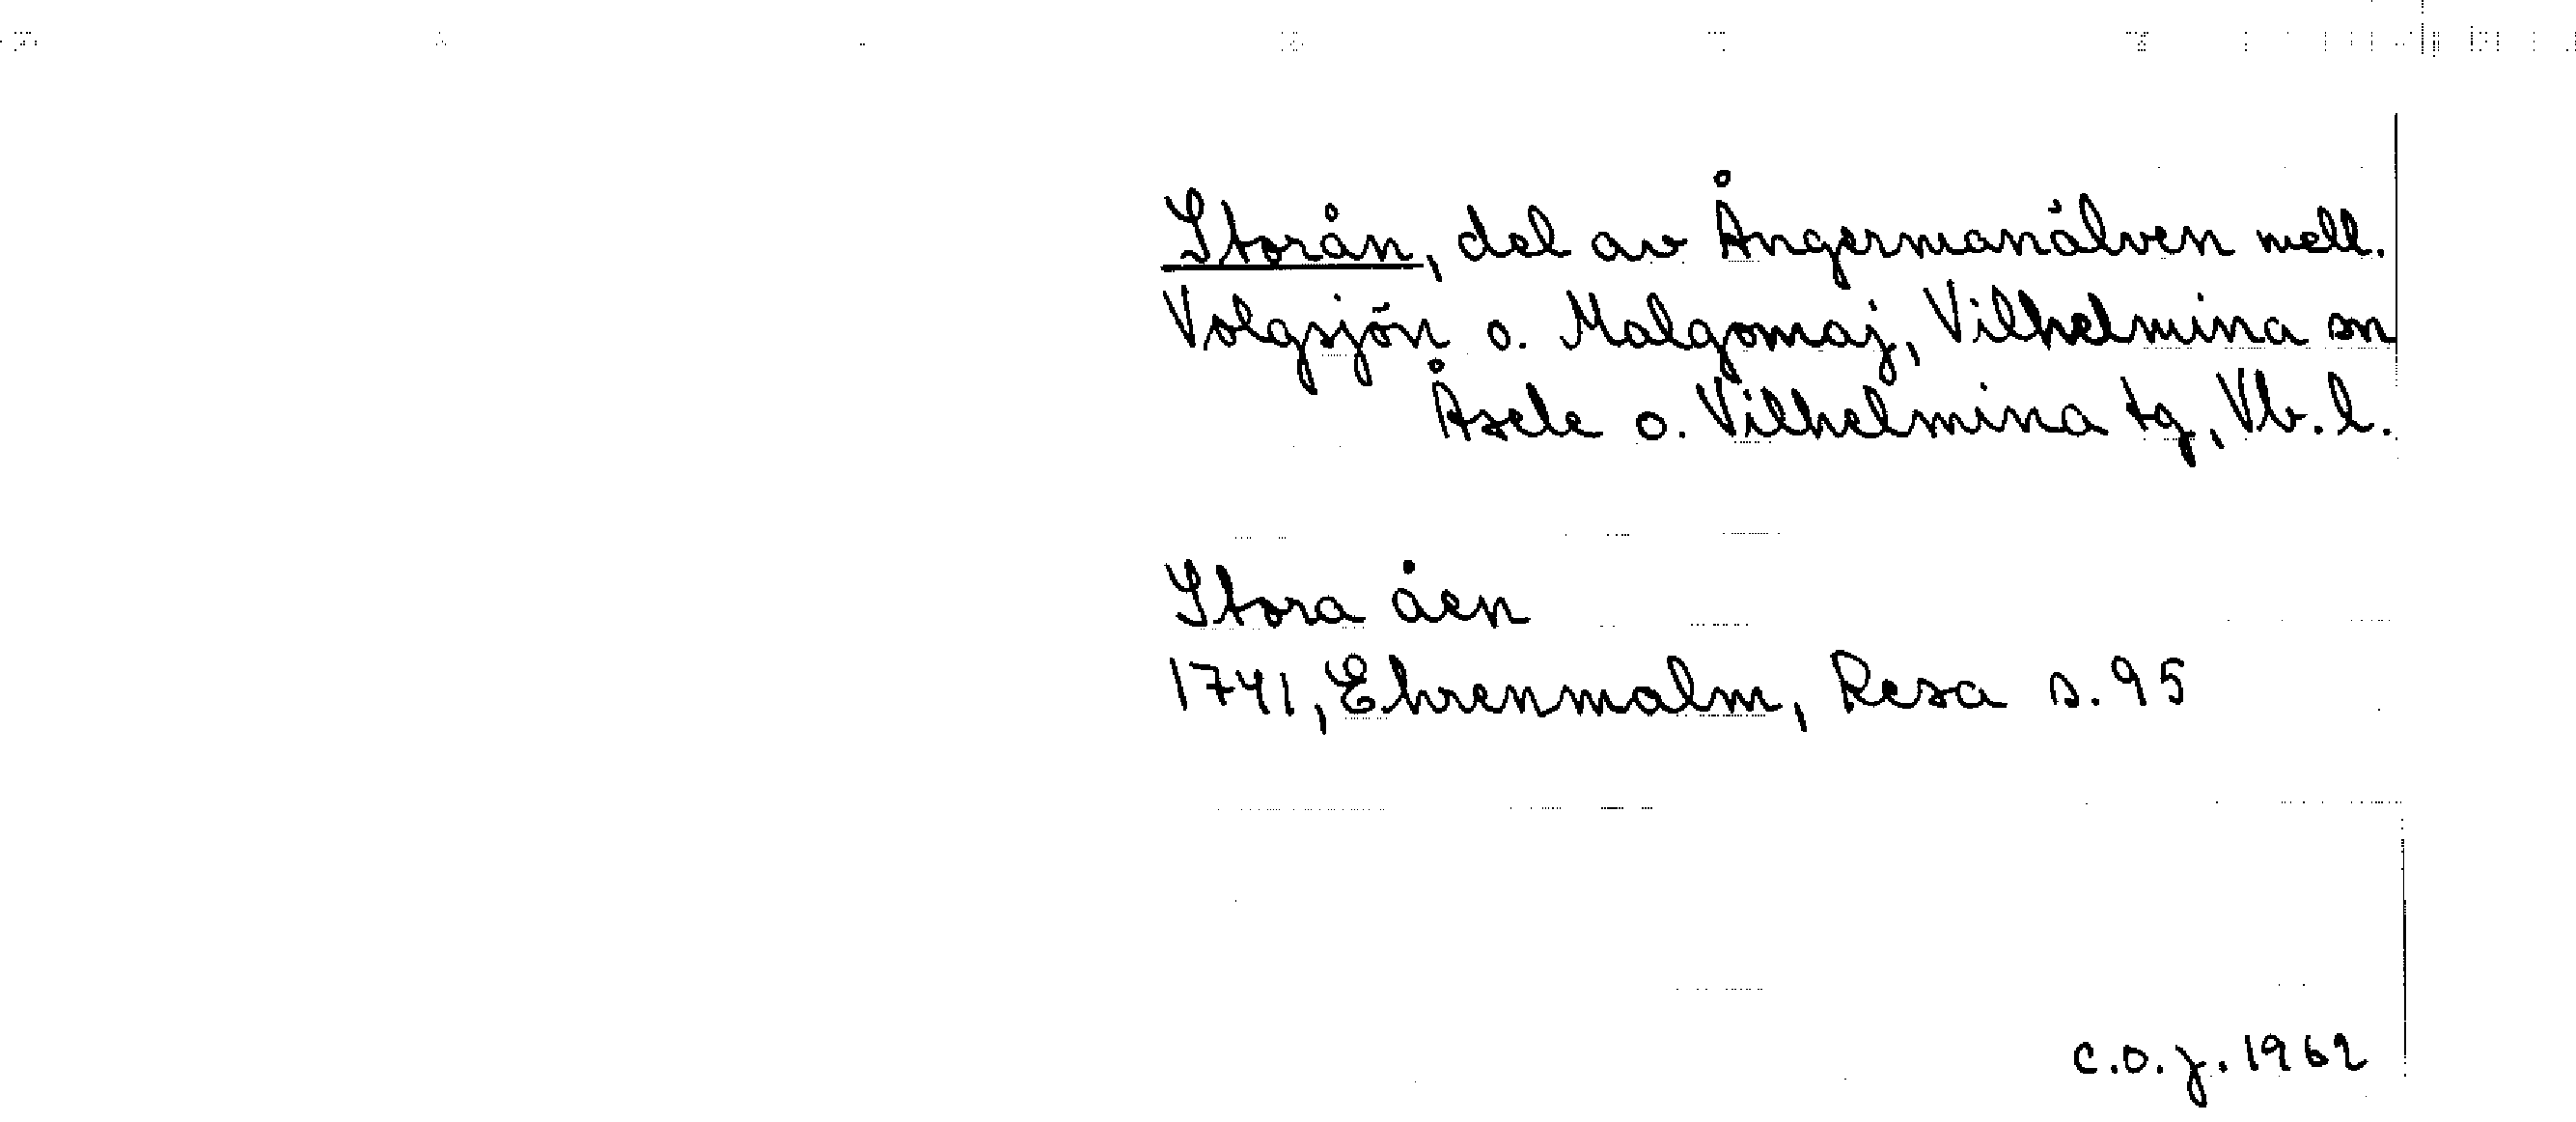 Storån, del av Ångermanälven mell.
Volgsjön o. Malgomaj, Vilhelmina sn
Åsele o. Vilhelmina tg, Vb. l.
Stora åen
1741, Ehrenmalm, Resa s. 95
C.O.J. 1962